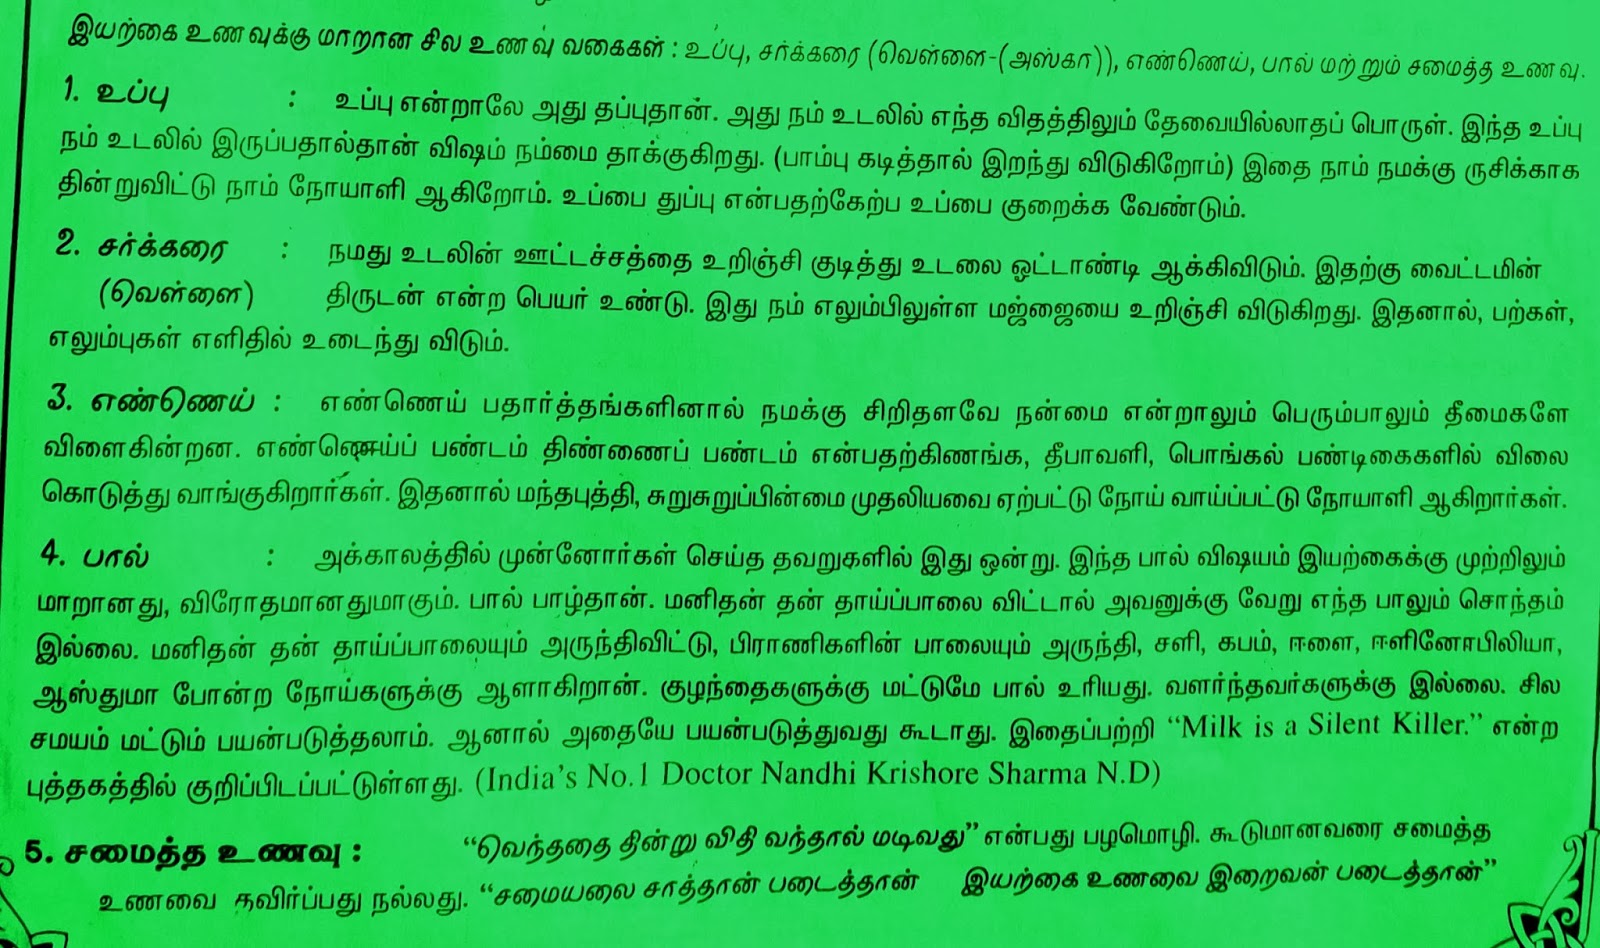 இயற்கை உணவுக்கு மாறான சில உணவு வகைகள் : உப்பு, சர்க்கரை (வெள்ளை-(அஸ்கா)), எண்ணெய், பால் மற்றும் சமைத்த உணவு.
1. உப்பு : உப்பு என்றாலே அது தப்புதான். அது நம் உடலில் எந்த விதத்திலும் தேவையில்லாதப் பொருள். இந்த உப்பு
நம் உடலில் இருப்பதால்தான் விஷம் நம்மை தாக்குகிறது. (பாம்பு கடித்தால் இறந்து விடுகிறோம்) இதை நாம் நமக்கு ருசிக்காக
தின்றுவிட்டு நாம் நோயாளி ஆகிறோம். உப்பை துப்பு என்பதற்கேற்ப உப்பை குறைக்க வேண்டும்.
2. சர்க்கரை : நமது உடலின் ஊட்டச்சத்தை உறிஞ்சி குடித்து உடலை ஓட்டாண்டி ஆக்கிவிடும். இதற்கு வைட்டமின்
(வெள்ளை) திருடன் என்ற பெயர் உண்டு. இது நம் எலும்பிலுள்ள மஜ்ஜையை உறிஞ்சி விடுகிறது. இதனால், பற்கள்,
எலும்புகள் எளிதில் உடைந்து விடும்.
3. எண்ணெய் : எண்ணெய் பதார்த்தங்களினால் நமக்கு சிறிதளவே நன்மை என்றாலும் பெரும்பாலும் தீமைகளே
விளைகின்றன. எண்ணெய்ப் பண்டம் திண்ணைப் பண்டம் என்பதற்கிணங்க, தீபாவளி, பொங்கல் பண்டிகைகளில் விலை
கொடுத்து வாங்குகிறார்கள். இதனால் மந்தபுத்தி, சுறுசுறுப்பின்மை முதலியவை ஏற்பட்டு நோய் வாய்ப்பட்டு நோயாளி ஆகிறார்கள்.
4. பால் : அக்காலத்தில் முன்னோர்கள் செய்த தவறுகளில் இது ஒன்று. இந்த பால் விஷயம் இயற்கைக்கு முற்றிலும்
மாறானது, விரோதமானதுமாகும். பால் பாழ்தான். மனிதன் தன் தாய்ப்பாலை விட்டால் அவனுக்கு வேறு எந்த பாலும் சொந்தம்
இல்லை. மனிதன் தன் தாய்ப்பாலையும் அருந்திவிட்டு, பிராணிகளின் பாலையும் அருந்தி, சளி, கபம், ஈளை, ஈளினோபிலியா,
ஆஸ்துமா போன்ற நோய்களுக்கு ஆளாகிறான். குழந்தைகளுக்கு மட்டுமே பால் உரியது. வளர்ந்தவர்களுக்கு இல்லை. சில
சமயம் மட்டும் பயன்படுத்தலாம். ஆனால் அதையே பயன்படுத்துவது கூடாது. இதைப்பற்றி “Milk is a Silent Killer.” என்ற
புத்தகத்தில் குறிப்பிடப்பட்டுள்ளது. (India’s No.1 Doctor Nandhi Krishore Sharma N.D)
5. சமைத்த உணவு : “வெந்ததை தின்று விதி வந்தால் மடிவது” என்பது பழமொழி. கூடுமானவரை சமைத்த
உணவை தவிர்ப்பது நல்லது. “சமையலை சாத்தான் படைத்தான் இயற்கை உணவை இறைவன் படைத்தான்”